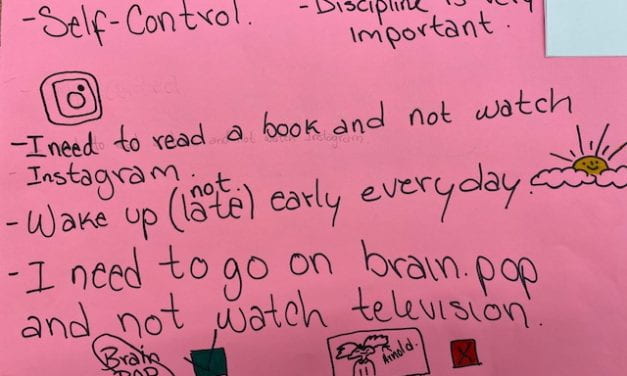 -Self-Control.
-Discipline is very
important.
-I need to read a book and not watch
Instagram.
-Wake up (not late) early everyday.
-I need to go on brain.pop
and not watch television.
Brain
POP
Arnold.
X